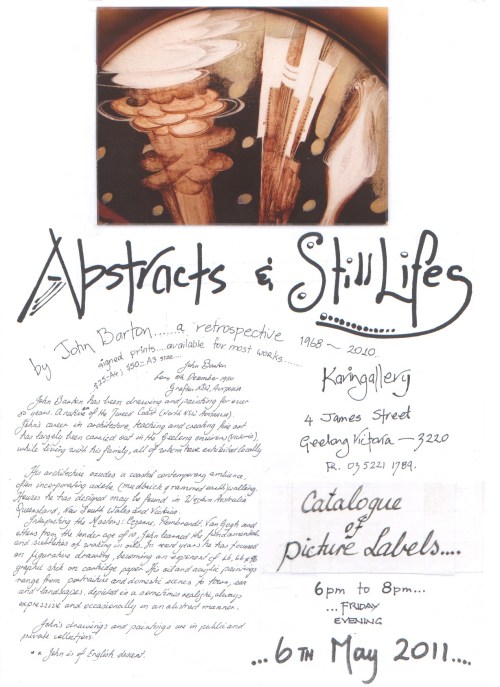 Abstracts & Still Lifes
by John Barton......a retrospective 1968 ~ 2010
signed prints....available for most works......
$25=A4; $50=A3 size...
John Barton
born 6th December 1950
Grafton NSW, Australia
John Barton has been drawing and painting for over
50 years. A native of the Tweed Coast (North NSW Australia).
John's career in architecture, teaching and creating fine art
has largely been carried out in the Geelong environs (Victoria),
while living with his family, all of whom have exhibited locally
His architecture exudes a coastal contemporary ambience,
often incorporating adobe (mudbrick & rammed earth) walling.
Houses he has designed may be found in Western Australia
Queensland, New South Wales and Victoria.
Interpreting the Masters: Cezanne, Rembrandt, Van Gogh and
others from the tender age of 10, John learned the fundamentals
and subtleties of working in oils. In recent years he has focused
on figurative drawing, becoming an exponent of
graphite stick on cartridge paper. His oil and acrylic paintings
range from portraiture and domestic scenes to town, sea
and landscapes, depicted in a sometimes realistic, always
expressive and occasionally in an abstract manner.
John's drawings and paintings are in public and
private collections
** John is of English descent.
Karingallery
4 James Street
Geelong Victoria — 3220
P. 03 5221 1789.
Catalogue
of
Picture Labels....
6pm to 8pm...
...FRIDAY
EVENING
...6TH May 2011....